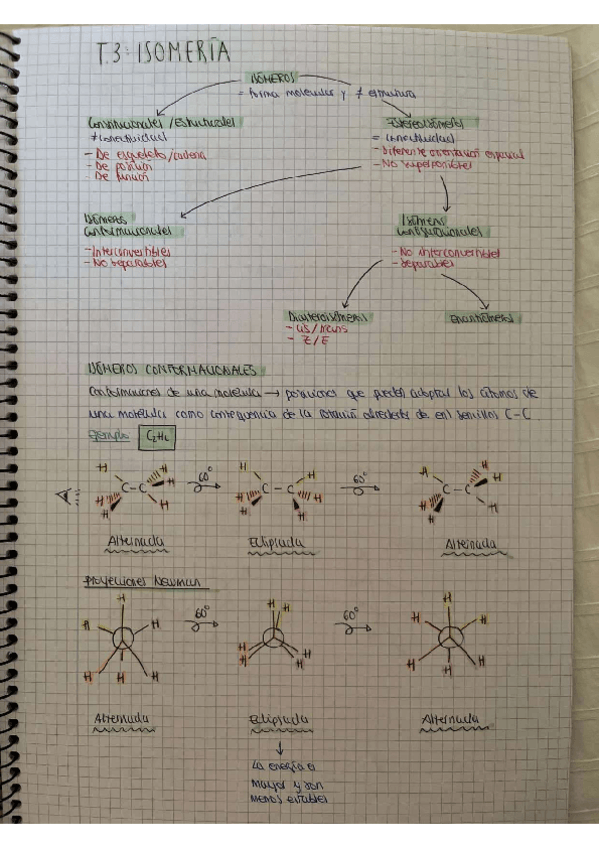 T.3: ISOMERÍA
ISÓMEROS
= forma molecular y ≠ estructura
Constitucionales / Estructurales
≠ conectividad
- De esqueleto/cadena
- De posición
- De función
Estereoisómeros
= conectividad
- Diferente orientación espacial
- No superponibles
Isómeros
conformacionales
- Interconvertibles
- No separables
Isómeros
configuracionales
- No interconvertibles
- Separables
Diastereoisómeros
- cis/trans
- Z/E
Enantiómeros
ISÓMEROS CONFORMACIONALES
Conformaciones de una molécula → posiciones que pueden adoptar los átomos de
una molécula como consecuencia de la rotación alrededor de enl sencillos C-C
Ejemplo
H H H C-C H H H
60°
H H H C-C H H H
60°
H H H C-C H H H
Alternada Eclipsada Alternada
Proyecciones Newman
H H H H H H
60°
H H H H H H
60°
H H H H H H
Alternada Eclipsada Alternada
↓
La energía es
mayor y son
menos estables